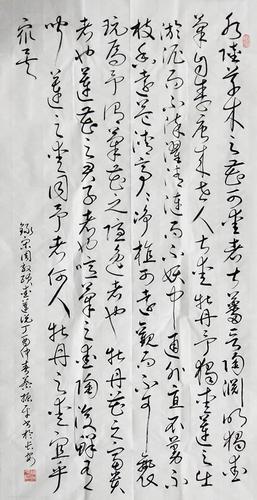 水陸草木之花可愛者甚蕃晉陶淵明獨愛
菊自李唐來世人甚愛牡丹予獨愛蓮之出
淤泥而不染濯清漣而不妖中通外直不蔓不
枝香遠益清亭亭淨植可遠觀而不可褻
玩焉予謂菊花之隱逸者也牡丹花之富貴
者也蓮花之君子者也噫菊之愛陶後鮮有
聞蓮之愛同予者何人牡丹之愛宜乎
眾矣
錄宋周敦頤愛蓮說丁酉仲春蔡振平書於長安